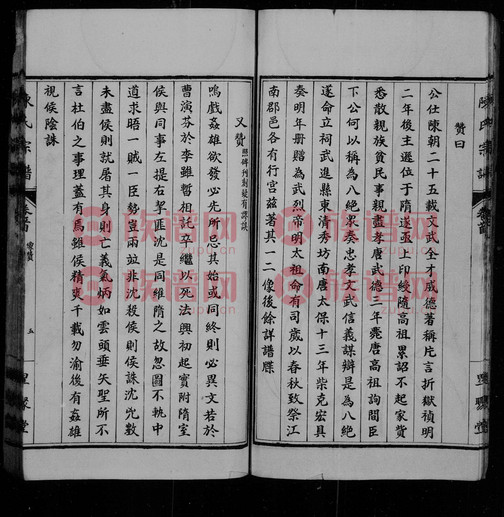 贊曰
公仕陳朝二十五載文武全才威德著稱片言折獄禎明
二年後主遜位于隋遂亟印綬隨高祖累詔不起家貲
悉散親族貧民事親盡孝唐武德二年薨唐高祖詢間臣
下何以稱為八絶衆奏忠孝文武信義謀辯是為八絶
遂命立祠武進縣東所秀坊南唐大保十三年柴克宏具
奏明年册贈為武烈帝明太祖命有司歲以春秋致祭江
南郡邑各有行宮茲著其一二像後餘詳譜牒
又贊
嗚戲姦雄欲發必先所忌其始或同終則必異文若於
曹演芬於李雖暫相託卒繼以死法興初起實附隋室
侯與同事左提右挈匪沈是同維隋之故忽圖不軌中
道求晤一賊一臣勢豈兩竝非沈殺侯則侯誅沈兇數
未盡侯則就屠其身則亡義氣炳如雲頭垂矢聖所不
言杜伯之事理蓋有焉雖侯精爽千載勿渝後有姦雄
視侯陰誅
陳氏宗譜
卷首
像贊
五
星聚堂
族谱网